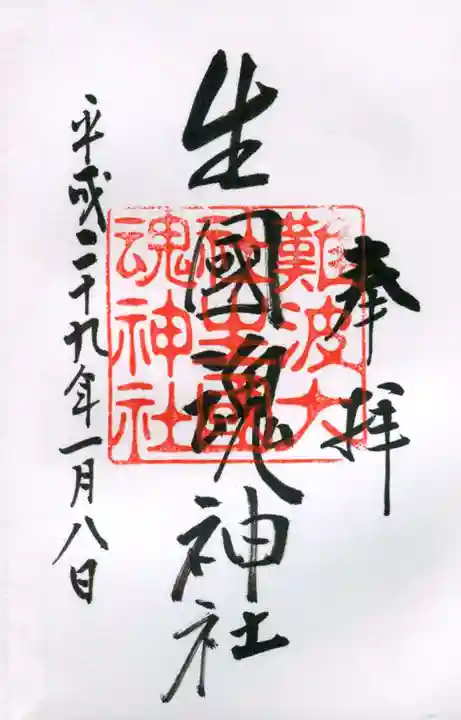 奉拝
生國魂神社
難波大
社生國
魂神社
平成二十九年一月八日